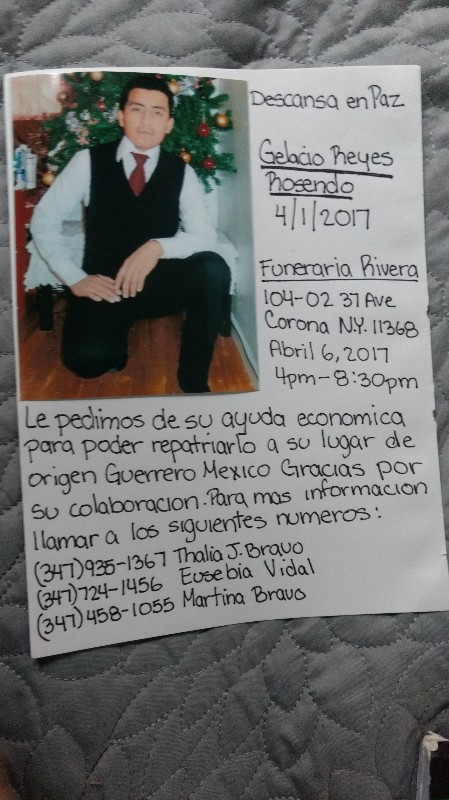 Descansa en Paz
Gelacio Reyes
Rosendo
4/1/2017
Funeraria Rivera
104-02 37 Ave
Corona N.Y. 11368
Abril 6, 2017
4pm-8:30pm
Le pedimos de su ayuda economica
para poder repatriarlo a su lugar de
origen Guerrero Mexico Gracias por
su colaboracion. Para mas informacion
llamar a los siguientes numeros:
(347)935-1367 Thalia J. Bravo
(347)724-1456 Eusebia Vidal
(347)458-1055 Martina Bravo